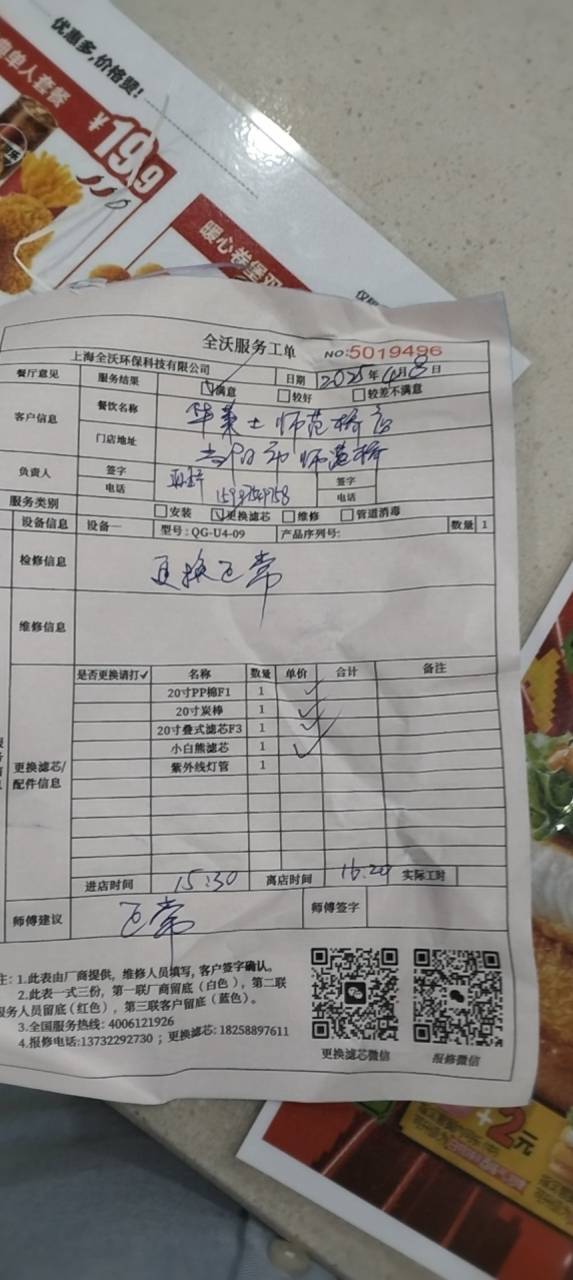 优惠多,价格煲!
单人套餐
¥19.9
暖心卷堡双
全沃服务工单
NO:5019496
上海全沃环保科技有限公司
餐厅意见 服务结果 ☑满意 日期 年4月8日
□较好 □较差不满意
客户信息 餐饮名称 华莱士师范桥店
门店地址 当阳市师范桥
负责人 签字 签字
电话 电话
服务类别 □安装 ☑更换滤芯 □维修 □管道消毒
设备信息 设备一 型号:QG-U4-09 产品序列号: 数量 1
检修信息 更换正常
维修信息
更换滤芯/配件信息
是否更换请打✓ 名称 数量 单价 合计 备注
20寸PP棉F1 1 ✓
20寸炭棒 1 ✓
20寸叠式滤芯F3 1 ✓
小白熊滤芯 1 ✓
紫外线灯管 1
进店时间 15:30 离店时间 16:20 实际工时
师傅建议 正常 师傅签字
注: 1.此表由厂商提供,维修人员填写,客户签字确认。
2.此表一式三份,第一联厂商留底(白色),第二联
服务人员留底(红色),第三联客户留底(蓝色)。
3.全国服务热线: 4006121926
4.报修电话:13732292730 ; 更换滤芯: 18258897611
更换滤芯微信
报修微信
+2元